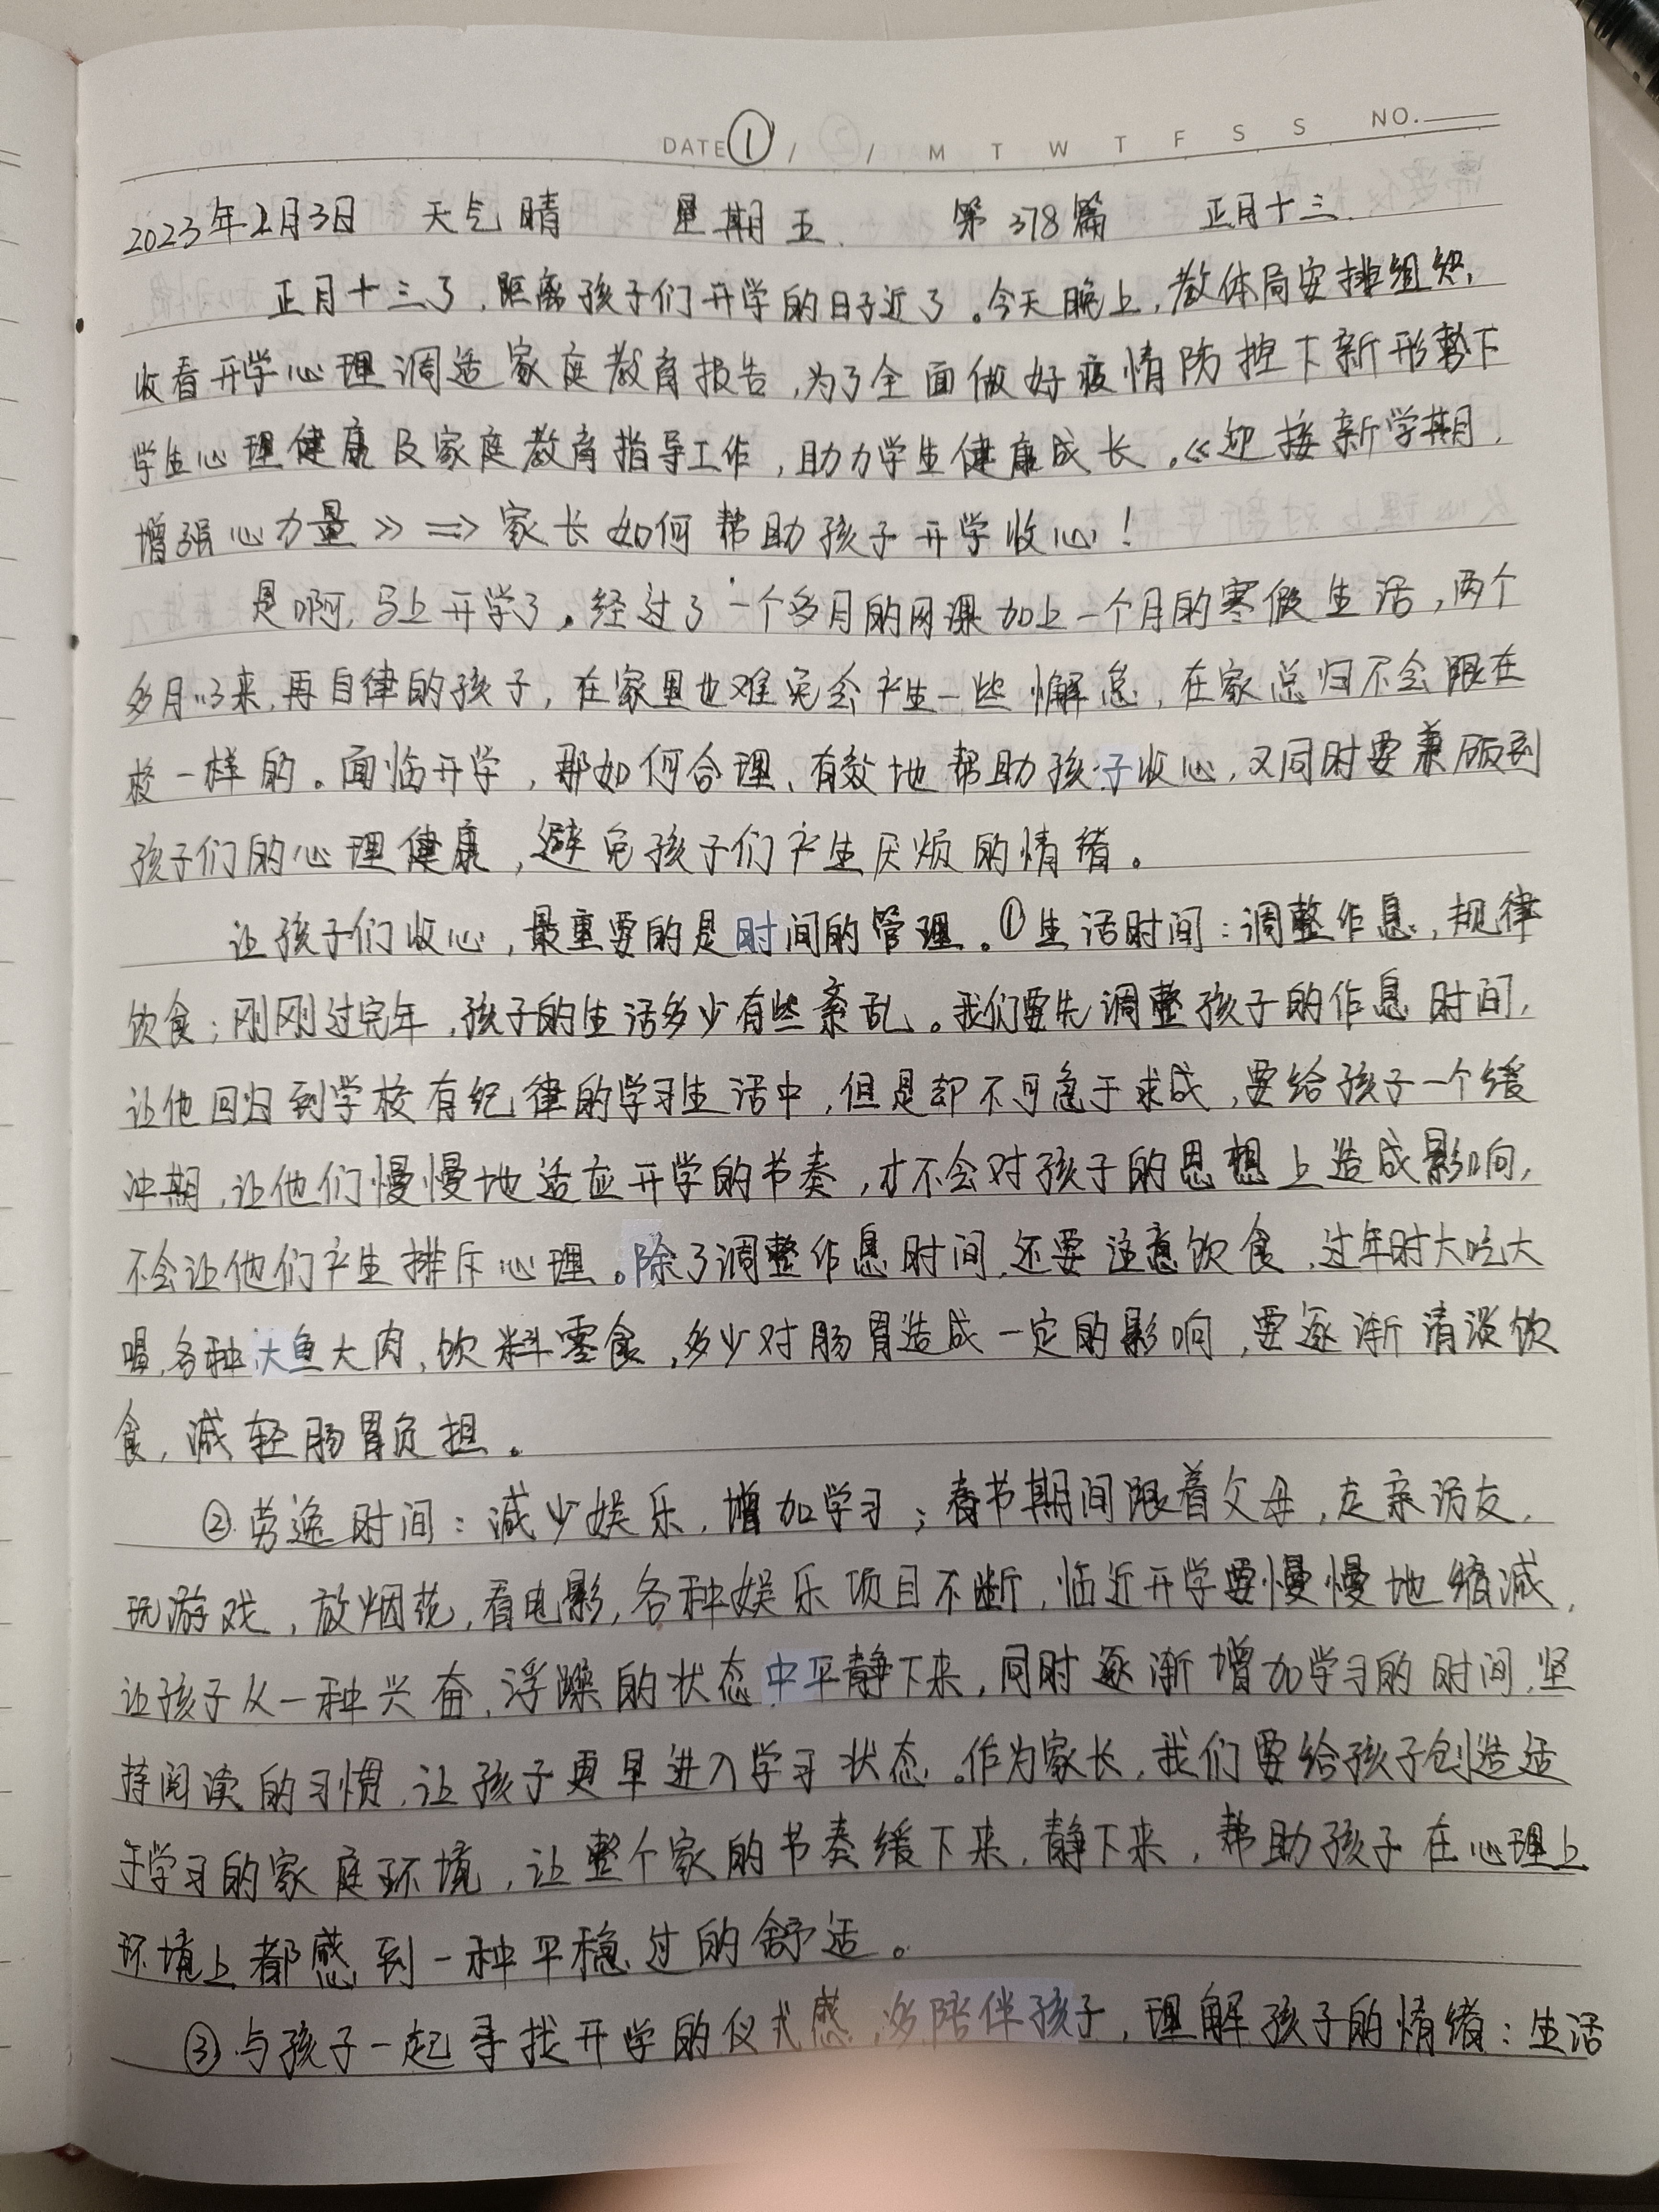 DATE ① / / M T W T F S S NO.
2023年2月3日 天气晴 星期五. 第378篇 正月十三.
正月十三了，距离孩子们开学的日子近了。今天晚上，教体局安排组织，
收看开学心理调适家庭教育报告，为了全面做好疫情防控下新形势下
学生心理健康及家庭教育指导工作，助力学生健康成长。《迎接新学期，
增强心力量》⇒家长如何帮助孩子开学收心！
是啊，马上开学了。经过了一个多月的网课加上一个月的寒假生活，两个
多月以来，再自律的孩子，在家里也难免会产生一些懈怠，在家总归不会跟在
校一样的。面临开学，那如何合理、有效地帮助孩子收心，又同时要兼顾到
孩子们的心理健康，避免孩子们产生厌烦的情绪。
让孩子们收心，最重要的是时间的管理。①生活时间：调整作息，规律
饮食；刚刚过完年，孩子的生活多少有些紊乱。我们要先调整孩子的作息时间，
让他回归到学校有纪律的学习生活中，但是却不可急于求成，要给孩子一个缓
冲期，让他们慢慢地适应开学的节奏，才不会对孩子的思想上造成影响，
不会让他们产生排斥心理。除了调整作息时间，还要注意饮食，过年时大吃大
喝，各种大鱼大肉，饮料零食，多少对肠胃造成一定的影响，要逐渐清淡饮
食，减轻肠胃负担。
②劳逸时间：减少娱乐，增加学习；春节期间跟着父母，走亲访友，
玩游戏，放烟花，看电影，各种娱乐项目不断，临近开学要慢慢地缩减，
让孩子从一种兴奋，浮躁的状态中平静下来，同时逐渐增加学习的时间，坚
持阅读的习惯，让孩子更早进入学习状态。作为家长，我们要给孩子创造适
于学习的家庭环境，让整个家的节奏缓下来，静下来，帮助孩子在心理上
环境上都感到一种平稳过的舒适。
③与孩子一起寻找开学的仪式感，多陪伴孩子，理解孩子的情绪：生活